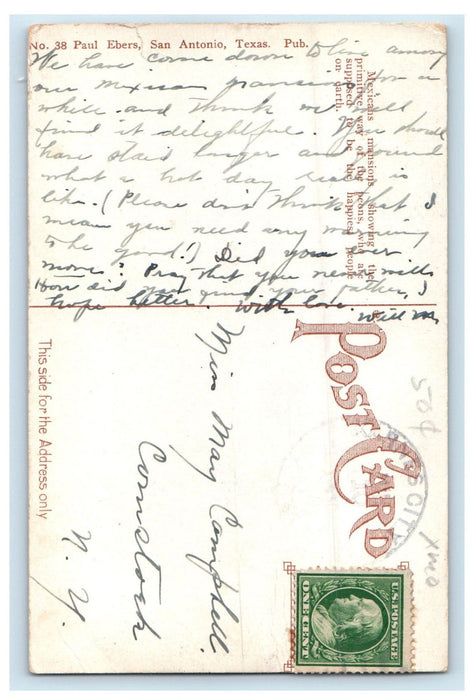 No. 38 Paul Ebers, San Antonio, Texas. Pub.
We have come down to live among
our Mexican mansions for a
while and think we will
find it delightful. You should
have staid longer and found
what a hot day really is
like. (Please don't think that I
mean you need any warming
to be good!) Did you ever
move? Pray that you never will.
How did you find your father, I
hope better. With love. Will M.
Mexicans mansions, showing the
primitive way of the peons, who are
supposed to be the happiest people
on earth.
POST CARD
This side for the Address only
Miss May Campbell.
Comstock
N. Y.
50¢
CITY
U.S. POSTAGE
ONE CENT